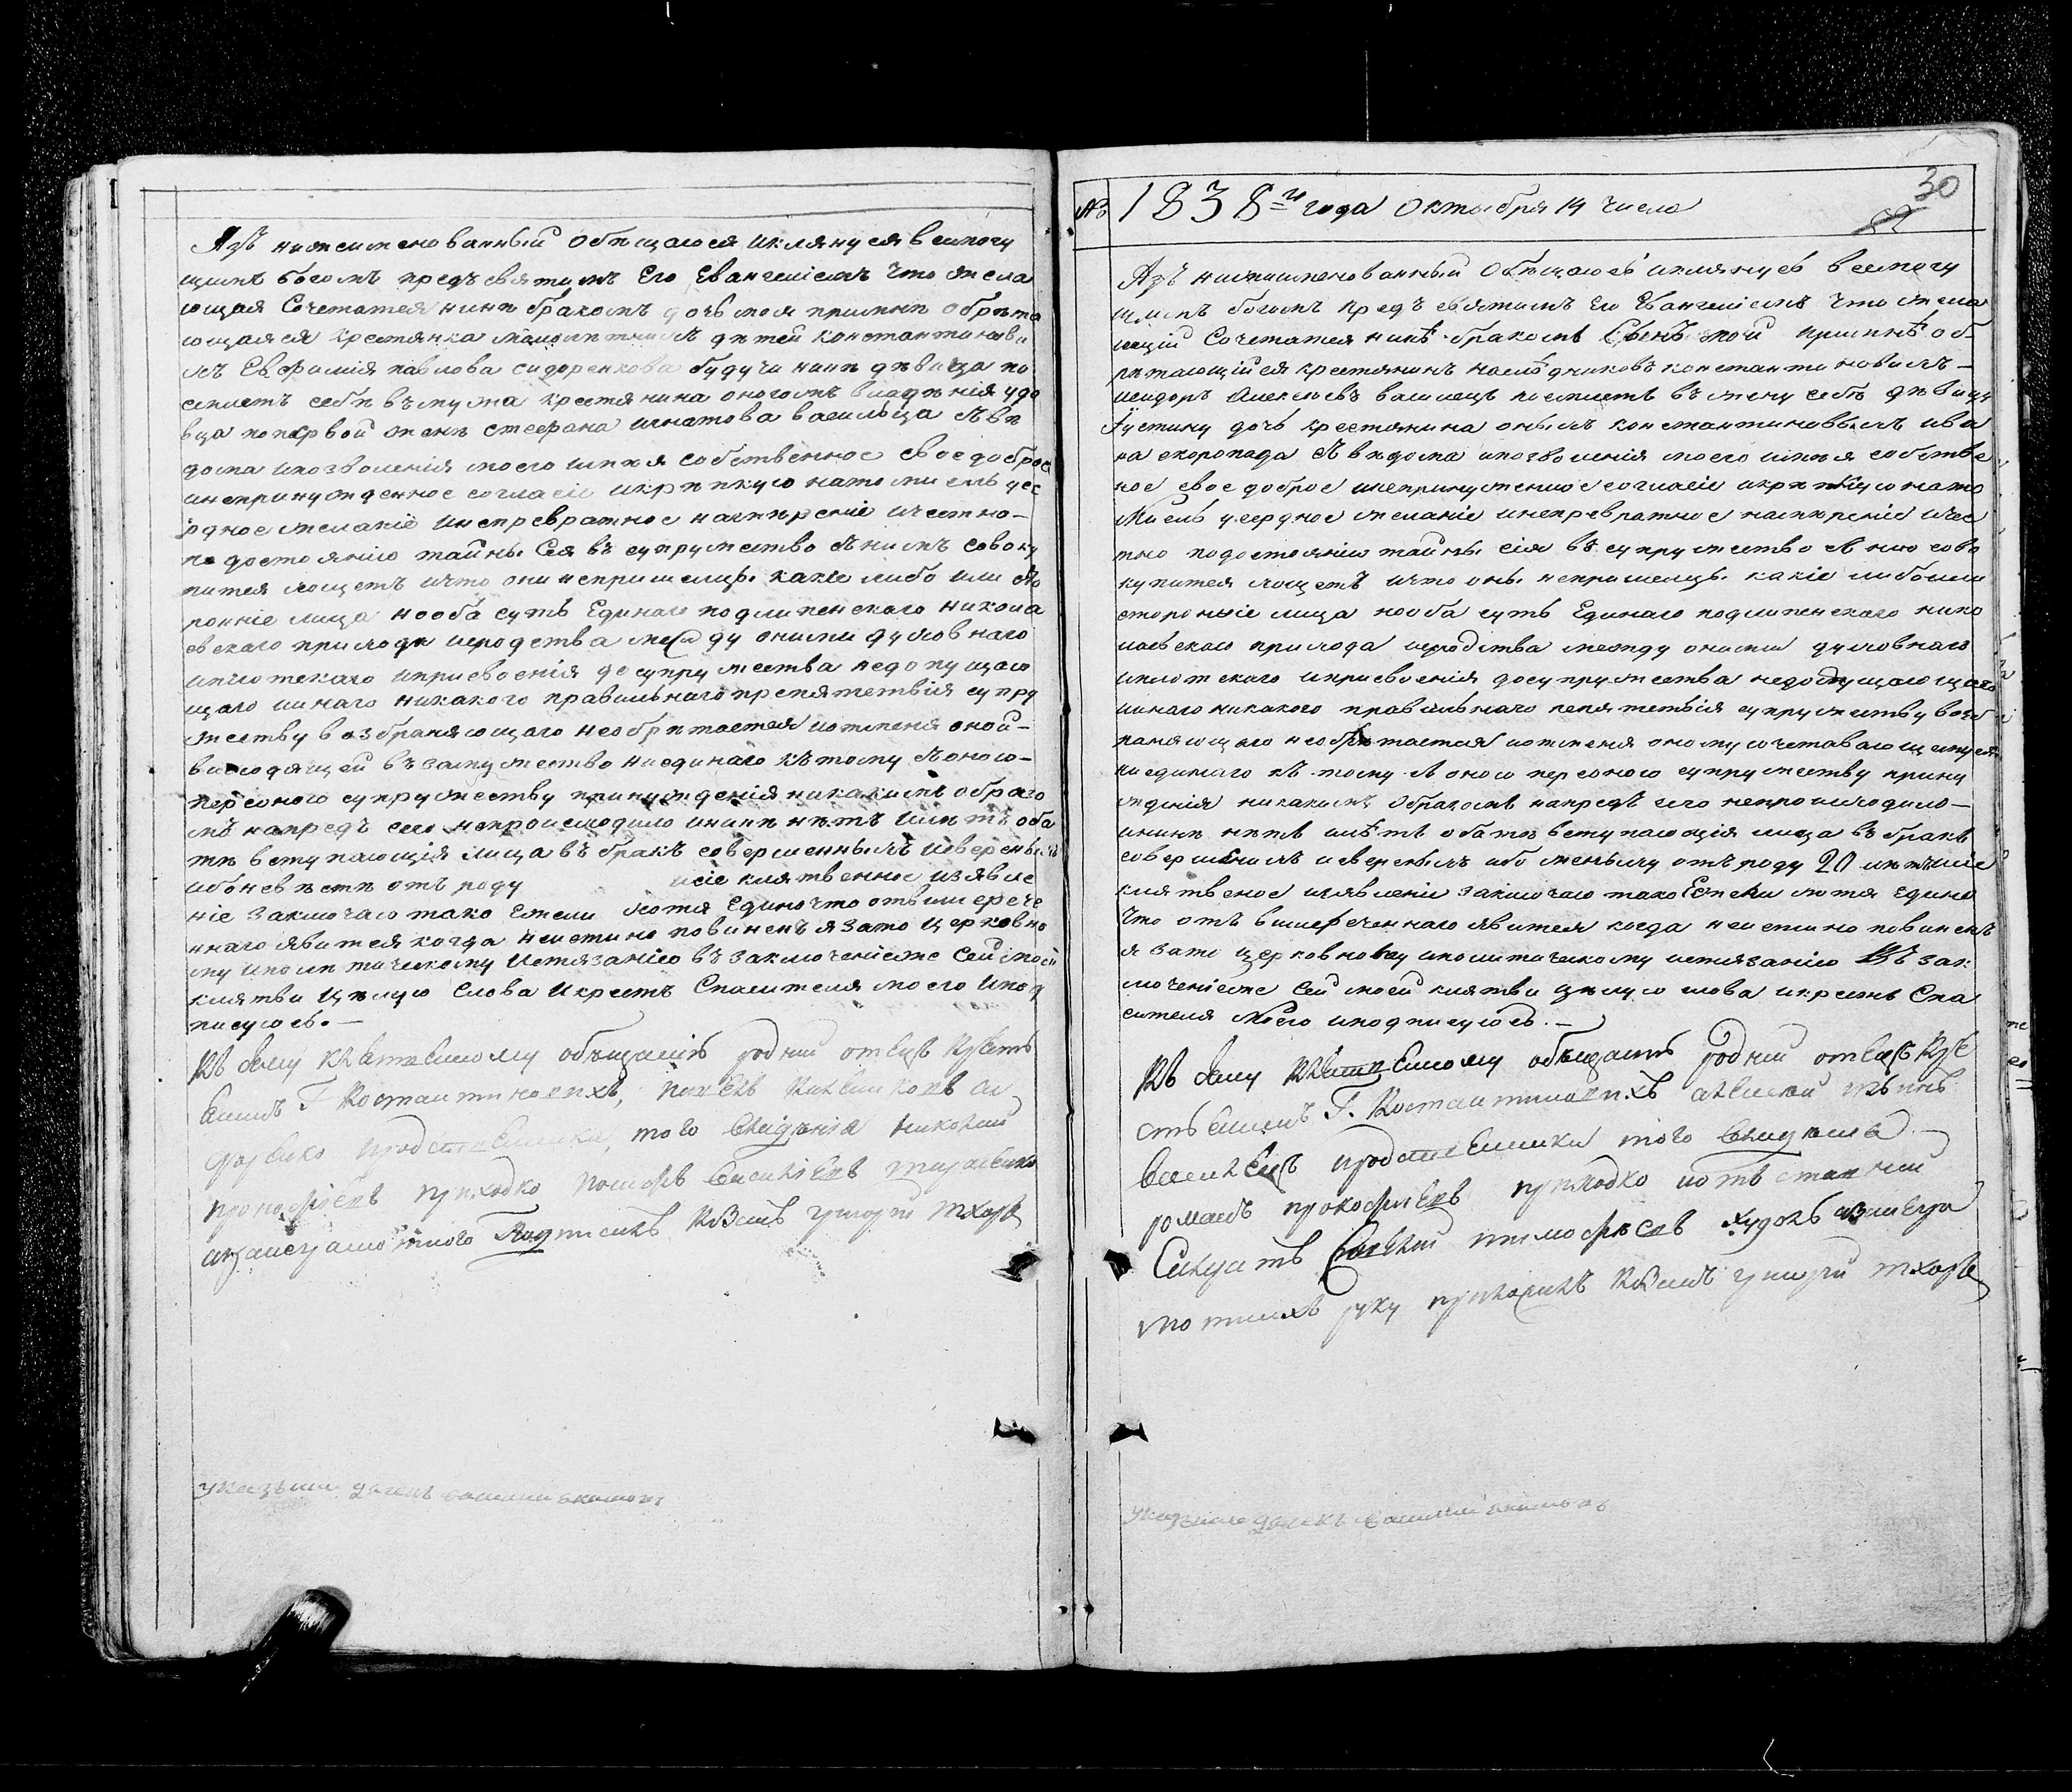 Азъ нижеименованный обѣщаюся иклянуся всемогу
щимъ богомъ предъ святимъ Его Евангелiемъ что жела
ющая Сочетатся нинѣ бракомъ дочь моя примнѣ обрѣта
ющаяся крестянка малолѣтнихъ дѣтей константинови
хъ Евфимiя павлова сидоренкова будучи нинѣ дѣвица по
емлетъ себѣ въ мужа крестянина оногожъ владѣнiя удо
вца попервой женѣ стефана игнатова васильца съ вѣ
дома ипозволенiя моего имѣя собственное свое доброе
инепринужденное согласiе икрѣпкую натомисль усе
рдное желанiе инепревратное намѣренiе ичестно-
по достоянiю тайны сея въ супружество снимъ совоку
пится хощетъ ичто они непришелцы какiе либо или сто
роннiе лица нооба суть Единаго подлипенскаго никола
евскаго прихода иродства между оними духовнаго
иплотскаго иприсвоенiя досупружества недопущаю
щаго иинаго никакого правильнаго препятствiя супру
жеству возбраняющаго необрѣтается иотменя оной-
висходящей въ замужество ниединаго кътому съоною-
персоною супружеству принужденiя никакимъ образо
мъ напредъ сего непроисходило ининѣ нѣтъ имѣтъ оба
тѣ вступающiя лица въ бракъ совершеннымъ изверенымъ
ибоневѣстѣ отъ роду исiе клятвенное изявле
нiе заключаю тако Ежели хотя Едино что отъ вишерече
ннаго явится когда неистино повиненъ я зато церковно
му иполитическому истязанiю въ заключенiеже сей моей
клятви цѣлую Слова икрестъ Спасителя моего ипод
писуюсь.-
Къ сему родний отецъ
того владѣнiя николай
григорiй тхоръ
1838го года октября 14 числа
30
Азъ нижеименованный обѣщаюсь иклянусь всемогу
щимъ богомъ предъ святимъ Его Евангелiемъ что жела
ющiй Сочетатся нинѣ бракомъ Сынъ мой примнѣ об-
рѣтающiйся крестянинъ наслѣдниковъ константиновихъ-
исидоръ Алексѣевъ василецъ поемлетъ въ жену себѣ дѣвицу
Iустину дочь крестянина онихъ константиновыхъ ива
на скоропада съ вѣдома ипозволенiя моего имѣя собстве
ное свое доброе инепринуженное согласiе икрѣпкую нато
мисль усердное желанiе инепревратное намѣренiе ичес
тно подостоянiю тайны сiя въ супружество с нию сово
купится хощетъ ичто оны непришелцы какiе либоили
сторонiе лица нооба суть Единаго подлипенскаго нико
лаевскаго прихода иродства между оними духовнаго
иплотскаго иприсвоенiя досупружества недопущающаго
иинаго никакого правильнаго пепятствiя супружеству возб
раняющаго необрѣтается иотменя оному сочетавающемуся
ниединаго къ тому съ оною персоною супружеству прину
жденiя никакимъ образомъ напредъ сего непроисходило-
ининѣ нѣтъ имѣтъ обатѣ вступающiя лица въ бракъ
совершенихъ изверенихъ ибо жениху отъ роду 20 лѣтисiе
клятвеное изявленiе заключаю тако Ежели хотя Едино
что отъ вишереченнаго явится когда неистино повиненъ
я зато церковному иполитическому истязанiю Въ зак
люченiеже Сей моей клятви цѣлую слова икрестъ Спа
сителя моего иподписуюсь.-
Къ сему родний отецъ
того владѣнiя
романъ прокофiевъ приходко
тимофѣевъ
руку приложилъ григорiй тхоръ